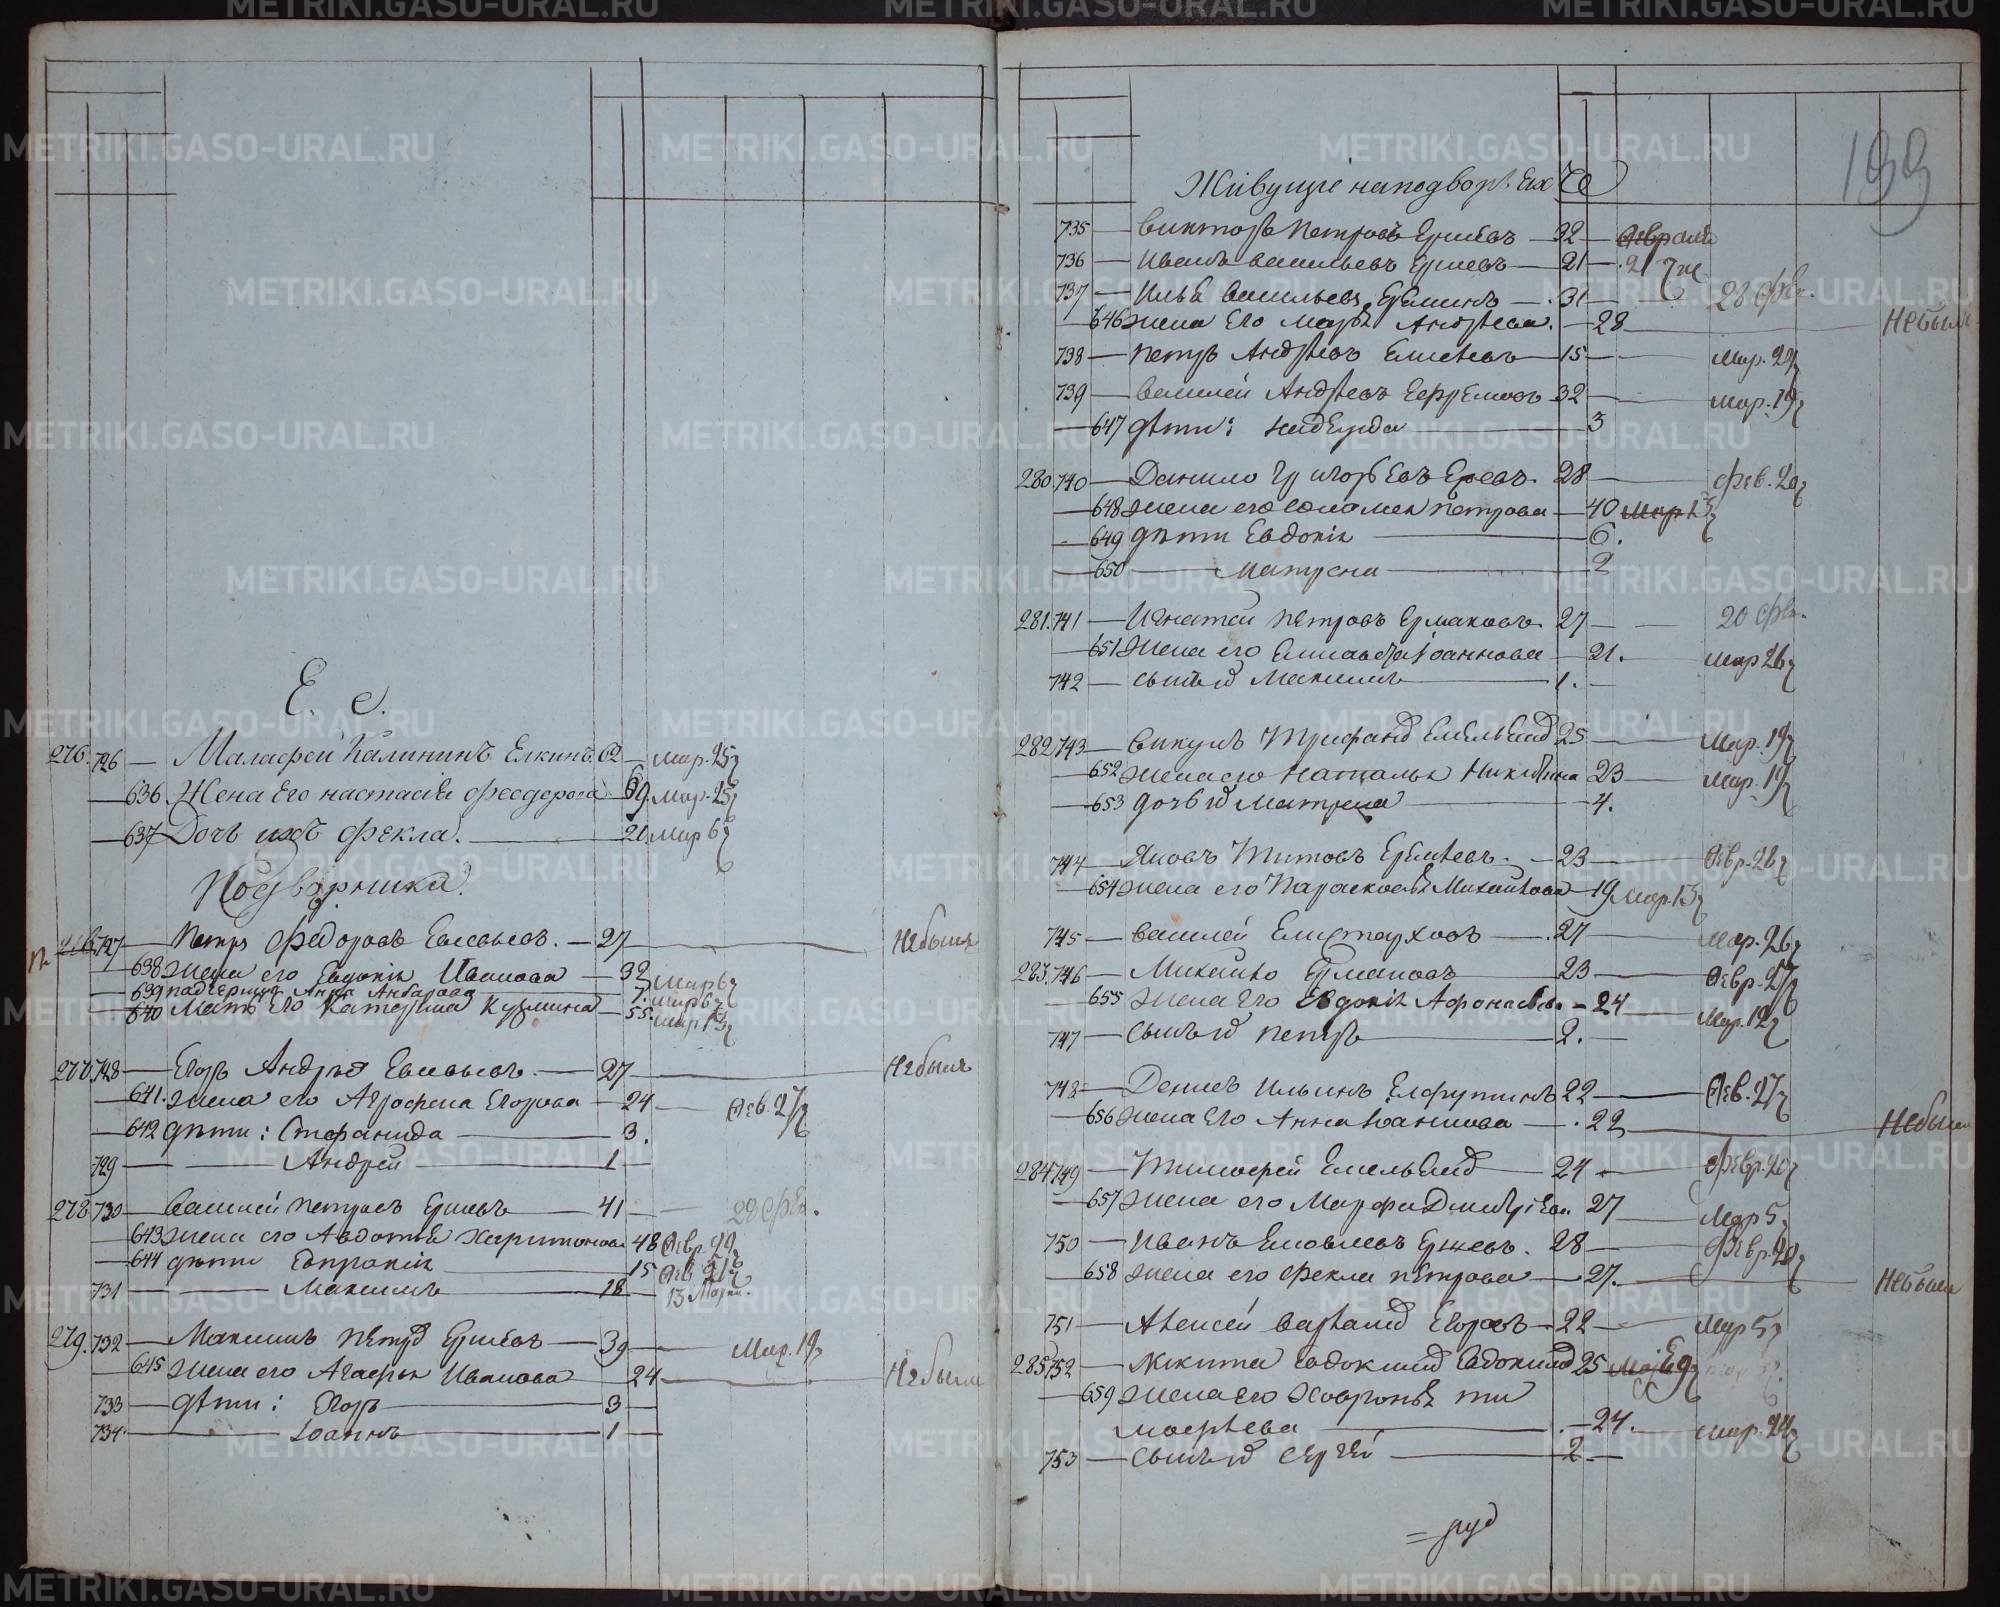 Е. е.
276. 726 — Малафей Калининъ Елкинъ 62 — мар. 25
636 Жена Его настасія феодорова 69. мар. 25
637 Дочь ихъ фекла. 20. мар 6
Подворники.
727 — Петръ Федоровъ — 27 Небылъ
638 жена его Евдокія Иванова — 32 мар 6
639 падчерица Анна 7. мар 6
640 Мать Его Катерина Кузмина — 55. мар 13
277. 728 — Егоръ Андреевъ — 27 Небылъ
641. жена его Агрофена Егорова — 24 — Фев. 27
642 дѣти: Стефанида — 3.
729 — Андрей — 1 —
278 730 — Василей Петровъ Ершевъ — 41 — 28 Фев.
643 жена его Авдотья Харитонова 48 Февр. 29
644 дѣти Евпракія — 15 Фев 21
731 — Максимъ — 18 — 13 Мар.
279. 732 — Максимъ Петровъ Ершевъ — 39 — Мар. 19
645 жена его Агафья Иванова — 24 Небыла
733 — дѣти: Егоръ — 3 —
734. — Іоаннъ — 1 —
199
Живущіе на подворьѣ ихъ
735 — Викторъ Петровъ Ершевъ — 32 — февраля
736 — Иванъ Васильевъ Ершевъ — 21 — 27
737 — Илья Васильевъ Ереминъ — 31 — 28 Фев.
646 жена Его Марья Андреева. — 28 Небыла
738 — Петръ Андреевъ Елисеевъ — 15 — Мар. 24
739 — Василей Андреевъ Ефремовъ 32 — мар. 19
647 дѣти: надежда — 3
280. 740 — Данило Григорьевъ 28 — Фев. 20
648 жена его Соломея Петрова — 40 мар 13
649 дѣти Евдокія — 6.
650 — Матрена — 2
281. 741 — Игнатей Петровъ Ермаковъ. 27 — 20 Фев.
651 жена его Елисавета Іоаннова — 21. мар 26
742 — сынъ Максимъ — 1. —
282 743 — Викулъ Трифановъ 25 — Мар. 19
652 жена его Наталья Никитина 23 — Мар. 19
653 дочь Матрена — 4.
744 — Яковъ Титовъ Еремеевъ. — 23 — Февр. 28
654 жена его Парасковья Михайлова — 19 Мар. 13
745 — Василей Елистарховъ — 27 — Мар. 26
283. 746 — Михайло Ермаковъ — 23 — Февр. 27
655 жена Его Евдокія Афонасьева — 24 — Мар. 12
747 — Сынъ Петръ — 2. —
748 — Денисъ Ильинъ 22 — Фев. 27
656 жена Его Анна Іоаннова — 22 Небыла
284 749 — Тимофей Емельяновъ 24 — Февр. 20
657 жена его Марфа Дмитріева 27 — Мар 5
750 — Иванъ Яковлевъ 28 — Февр. 20
658 жена его фекла Петрова — 27. Небыла
751 — Алексей Егоровъ — 22 — Мар 5
285 752 — Никита Евдокимовъ Евдокимовъ 25 Мар 9
659 жена его Ховронья Ти
мофеева — 24. — Мар. 24
753 — сынъ Сергѣй — 2 —